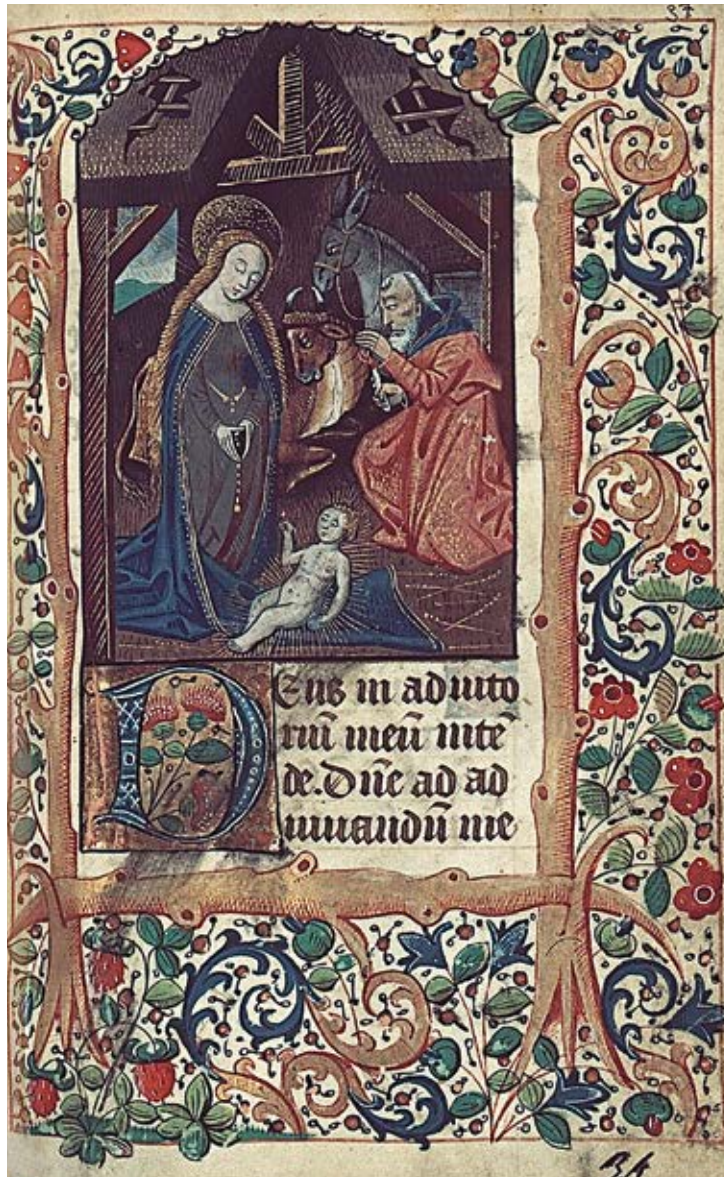 37
Deus in adiuto
riū meū intē
de. Dñe ad ad
iuuandū me
34